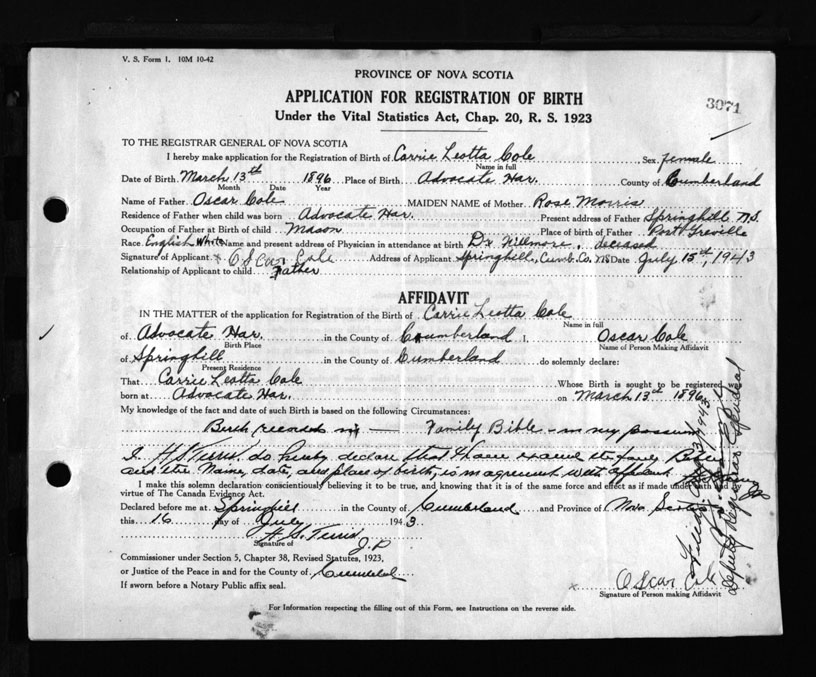 V. S. Form 1. 10M 10-42
PROVINCE OF NOVA SCOTIA
APPLICATION FOR REGISTRATION OF BIRTH
Under the Vital Statistics Act, Chap. 20, R. S. 1923
3071
TO THE REGISTRAR GENERAL OF NOVA SCOTIA
I hereby make application for the Registration of Birth of Carrie Leotta Cole Sex female
Name in full
Date of Birth March 13th 1896 Place of Birth Advocate Har. County of Cumberland
Month Date Year
Name of Father Oscar Cole MAIDEN NAME of Mother Rose Morris
Residence of Father when child was born Advocate Har. Present address of Father Springhill N.S.
Occupation of Father at Birth of child Mason Place of Birth of Father Port Greville
Race English White Name and present address of Physician in attendance at birth Dr. deceased
Signature of Applicant x Oscar Cole Address of Applicant Springhill, Cumb. Co. NS Date July 15th, 1943
Relationship of Applicant to child Father
AFFIDAVIT
IN THE MATTER of the application for Registration of the Birth of Carrie Leotta Cole
Name in full
of Advocate Har. in the County of Cumberland I, Oscar Cole
Birth Place Name of Person Making Affidavit
of Springhill in the County of Cumberland do solemnly declare:
Present Residence
That Carrie Leotta Cole Whose Birth is sought to be registered was
born at Advocate Har. on March 13th 1896
My knowledge of the fact and date of such Birth is based on the following Circumstances:
Birth recorded in — Family Bible - in my
I do hereby declare that I have the family Bible
and the Name, date, and place of birth, is in agreement with
I make this solemn declaration conscientiously believing it to be true, and knowing that it is of the same force and effect as if made under oath and by
virtue of The Canada Evidence Act.
Declared before me at Springhill in the County of Cumberland and Province of Nova Scotia
this 16 day of July 1943
J.P
Signature of
Commissioner under Section 5, Chapter 38, Revised Statutes, 1923,
or Justice of the Peace in and for the County of Cumberland
If sworn before a Notary Public affix seal.
x Oscar Cole
Signature of Person making Affidavit
For Information respecting the filling out of this Form, see Instructions on the reverse side.
1943
Deputy Registrar General